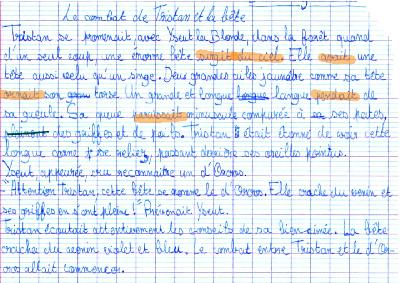 Le combat de Tristan et la bête
Tristan se promenait, avec Yseut la Blonde, dans la forêt quand
d'un seul coup, une énorme bête surgit du ciel. Elle avait une
tête aussi velu qu'un singe. Deux grandes ailes jaunâtre comme sa tête
ornait son torse. Un grande et longue langue pendait de
sa gueule. Sa queue paraissait minuscule comparée à ses pates,
des griffes et de poils. Tristan était étonné de voir cette
longue corne se relier, passant derrière ses oreilles pointus.
Yseut, appeurée, cru reconnaitre un d'Ororos.
"Attention Tristan, cette bête se nomme le d'Ororos. Elle crache du venin et
ses griffes en sont pleine!" Prévenait Yseut.
Tristan écoutait attentivement les conseils de sa bien-aimée. La bête
cracha du venin violet et bleu. Le combat entre Tristan et le d'Or-
oros allait commencer.